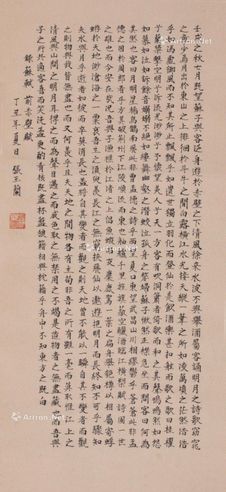 壬戌之秋七月既望蘇子與客泛舟遊於赤壁之下清風徐來水波不興舉酒屬客誦明月之詩歌窈窕
之章少焉月出於東山之上徘徊於斗牛之間白露橫江水光接天縱一葦之所如凌萬頃之茫然浩浩
乎如馮虛御風而不知其所止飄飄乎如遺世獨立羽化而登仙於是飲酒樂甚扣舷而歌之歌曰桂櫂
兮蘭槳擊空明兮泝流光渺渺兮予懷望美人兮天一方客有吹洞簫者倚歌而和之其聲嗚嗚然如怨
如慕如泣如訴餘音嫋嫋不絕如縷舞幽壑之潛蛟泣孤舟之嫠婦蘇子愀然正襟危坐而問客曰何為
其然也客曰月明星稀烏鵲南飛此非曹孟德之詩乎西望夏口東望武昌山川相繆鬱乎蒼蒼此非孟
德之困於周郎者乎方其破荊州下江陵順流而東也舳艫千里旌旗蔽空釃酒臨江橫槊賦詩固一世
之雄也而今安在哉況吾與子漁樵於江渚之上侶魚蝦而友麋鹿駕一葉之扁舟舉匏樽以相屬寄蜉
蝣於天地渺滄海之一粟哀吾生之須臾羨長江之無窮挾飛仙以遨遊抱明月而長終知不可乎驟知
夫水與月乎逝者如斯而未嘗往也盈虛者如彼而卒莫消長也蓋將自其變者而觀之則天地曾不能以一瞬自其不變者而觀
之則物與我皆無盡也而又何羨乎且夫天地之間物各有主苟非吾之所有雖一毫而莫取惟江上之
清風與山間之明月耳得之而為聲目遇之而成色取之無禁用之不竭是造物者之無盡藏也而吾與
子之所共適客喜而笑洗盞更酌肴核既盡杯盤狼籍相與枕籍乎舟中不知東方之既白
錄蘇軾前赤壁賦
丁丑年夏日張玉蘭